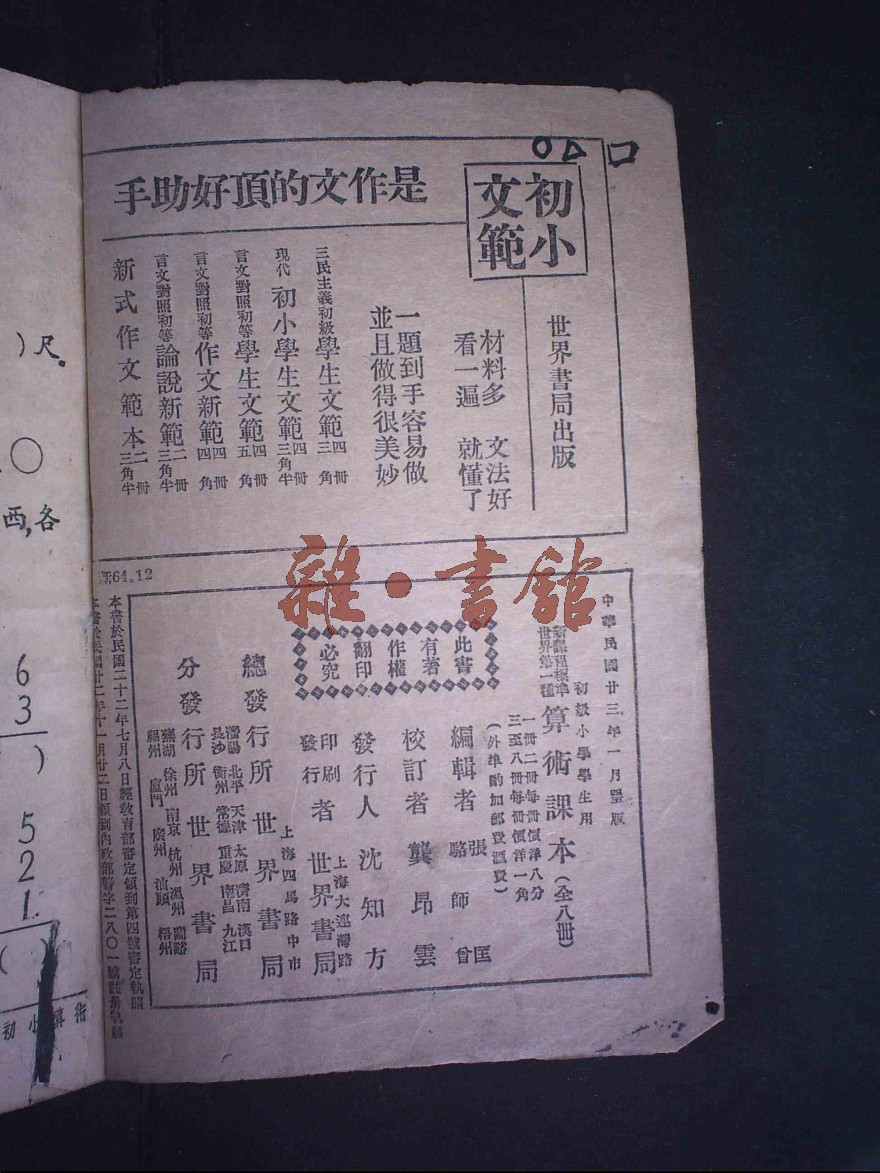 初小
文範
是作文的頂好助手
世界書局出版
材料多 文法好
看一遍 就懂了
一題到手容易做
並且做得很美妙
三民主義初級學生文範 四冊 三角
現代初小學生文範 四冊 三角半
言文對照初等學生文範 四冊 五角
言文對照初等作文新範 四冊 四角
言文對照初等論說新範 二冊 三角半
新式作文範本 二冊 三角半
雜·書館
64.12
中華民國廿三年一月 版
初級小學學生用
新課程標準世界第一種 算術課本（全八冊）
一冊二冊每冊價洋八分
三至八冊每冊價洋一角
（外埠酌加郵費匯費）
此書
有著
作權
翻印
必究
編輯者 張匡 駱師曾
校訂者 龔昂雲
發行人 沈知方
印刷發行者 世界書局 上海大連灣路
總發行所 世界書局 上海四馬路中市
分發行所 世界書局
瀋陽 北平 天津 太原 濟南 漢口
長沙 衡州 常德 重慶 南昌 九江
蕪湖 徐州 南京 杭州 溫州 蘭谿
福州 廈門 廣州 汕頭 梧州
本書於民國二十二年七月八日經教育部審定領到第四號審定執照
本書於民國廿二年十一月廿二日領到內政部警字二八〇一號註冊執照
) 尺.
西,各
6
3
)
5
2
1
( )
初小算術